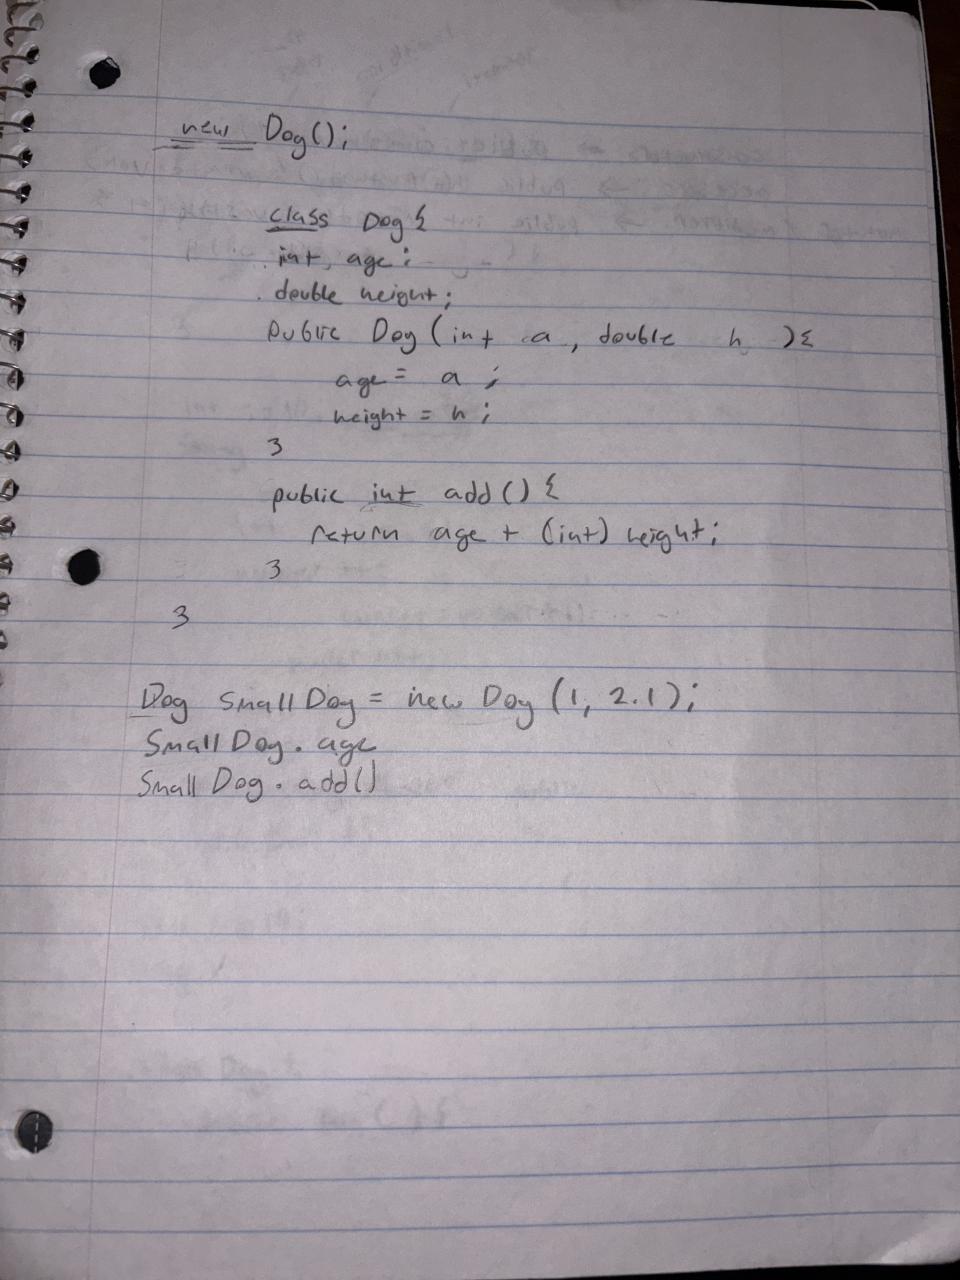 new Dog();
class Dog{
int age;
double height;
public Dog (int a, double h ){
age = a ;
height = h ;
}
public int add () {
return age + (int) height;
}
}
Dog SmallDog = new Dog (1, 2.1);
SmallDog. age
Small Dog. add()